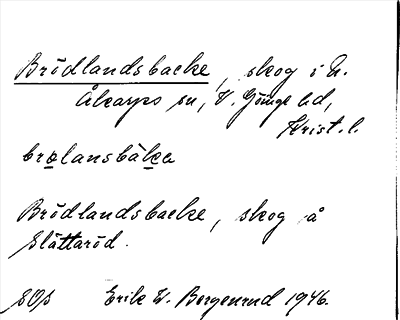 Brödlandsbacke, skog i N.
Åkarps sn, V. Göinge hd,
Krist. l.
brølansbaka
Brödlandsbacke, skog å
Slättaröd.
SOs Erik W. Borgenrud 1946.